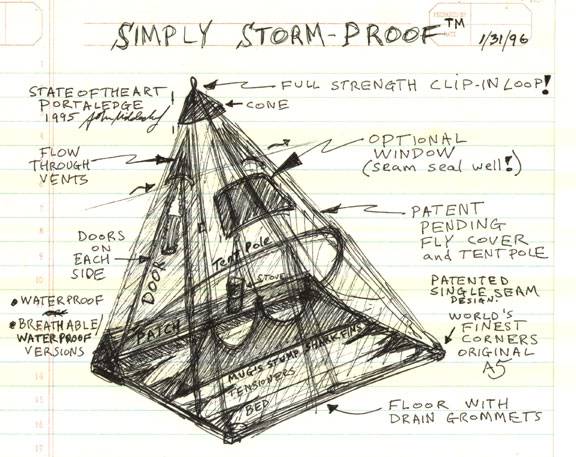 SIMPLY STORM-PROOF™
1/31/96
STATE OF THE ART
PORTALEDGE
1995
FULL STRENGTH CLIP-IN LOOP!
CONE
FLOW
THROUGH
VENTS
OPTIONAL
WINDOW
(seam seal well!)
PATENT
PENDING
FLY COVER
and TENT POLE
DOORS
ON
EACH
SIDE
DOOR
Tent Pole
STOVE
PATENTED
SINGLE SEAM
DESIGN
WORLD'S
FINEST
CORNERS
ORIGINAL
A5
• WATERPROOF
• BREATHABLE/
WATERPROOF
VERSIONS
PATCH
MUG'S STUMP SHARK FINS
TENSIONERS
BED
FLOOR WITH
DRAIN GROMMETS